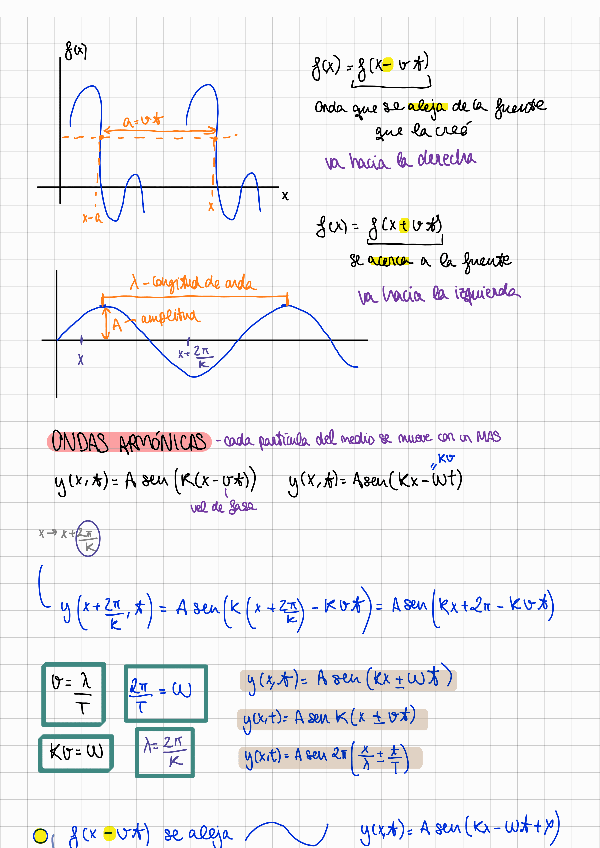 f(x)
a=vt
x-a
x
x
f(x) = f(x - vt)
Onda que se aleja de la fuente
que la creó
va hacia la derecha
f(x) = f(x + vt)
se acerca a la fuente
va hacia la izquierda
λ - longitud de onda
A - amplitud
x
x + 2π/K
ONDAS ARMÓNICAS - cada partícula del medio se mueve con un MAS
y(x,t) = A sen (K(x - vt))
vel de fase
y(x,t) = A sen (Kx - ωt)
" Kv
x → x + 2π/K
y(x + 2π/K, t) = A sen (K(x + 2π/K) - Kvt) = A sen (Kx + 2π - Kvt)
v = λ/T
2π/T = ω
y(x,t) = A sen (Kx ± ωt)
y(x,t) = A sen K(x ± vt)
Kv = ω
λ = 2π/K
y(x,t) = A sen 2π (x/λ ± t/T)
f(x - vt) se aleja
y(x,t) = A sen (Kx - ωt + φ)